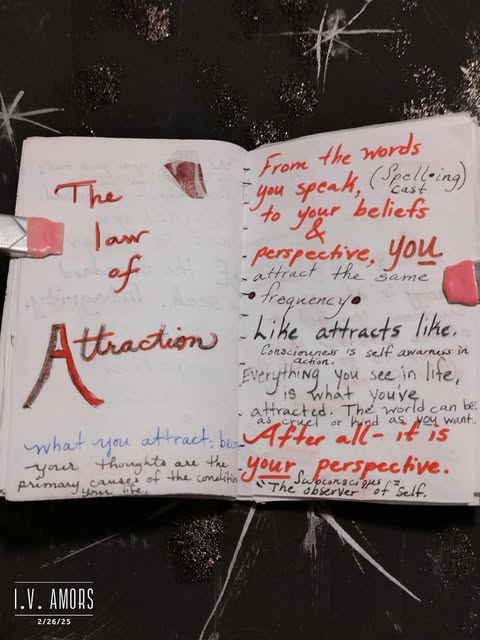 The
law
of
Attraction
what you attract; be
your thoughts are the
primary causes of the condition
your life.
From the words
you speak, (Spell-ing)
cast
to your beliefs
&
perspective, you
attract the same
• frequency •
Like attracts like.
Consciouness is self awarness in
action.
Everything you see in life,
is what you've
attracted. The world can be
as cruel or kind as you want.
After all- it is
your perspective.
Subconscious =
"The observer of Self.
I.V. AMORS
2/26/25